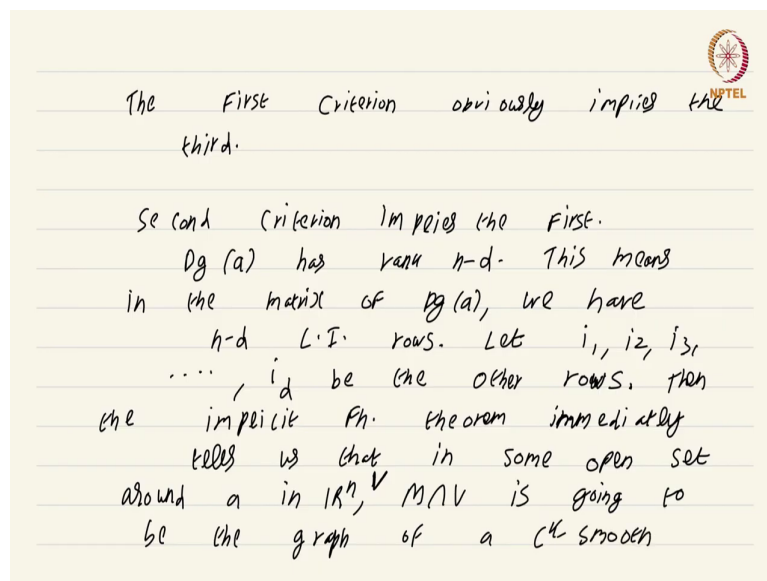 The First Criterion obviously implies the
third.
Second Criterion Implies the First.
Dg (a) has rank n-d. This means
in the matrix of Dg (a), we have
n-d L.I. rows. Let i₁, i₂, i₃,
...., i_d be the other rows. Then
the implicit Fn. theorem immediatly
tells us that in some open set
around a in ℝⁿ, V M∩V is going to
be the graph of a Cᵏ smooth
NPTEL